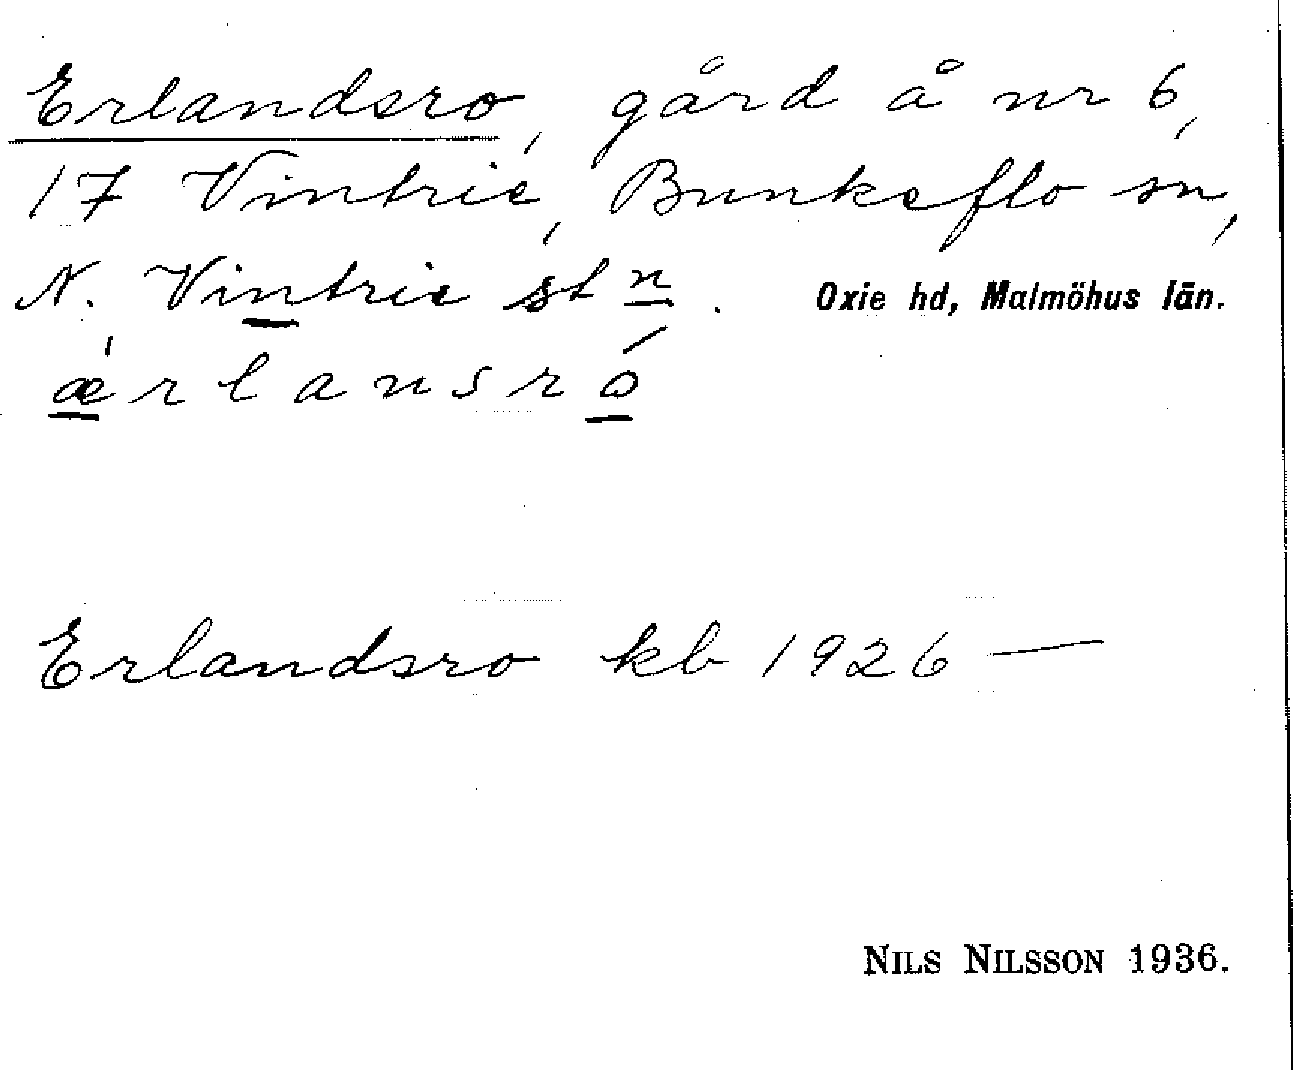 Erlandsro, gård å nr 6,
17 Vintrie, Bunkeflo sn,
N. Vintrie st n. Oxie hd, Malmöhus län.
ǽrlansró
Erlandsro kb 1926 —
NILS NILSSON 1936.